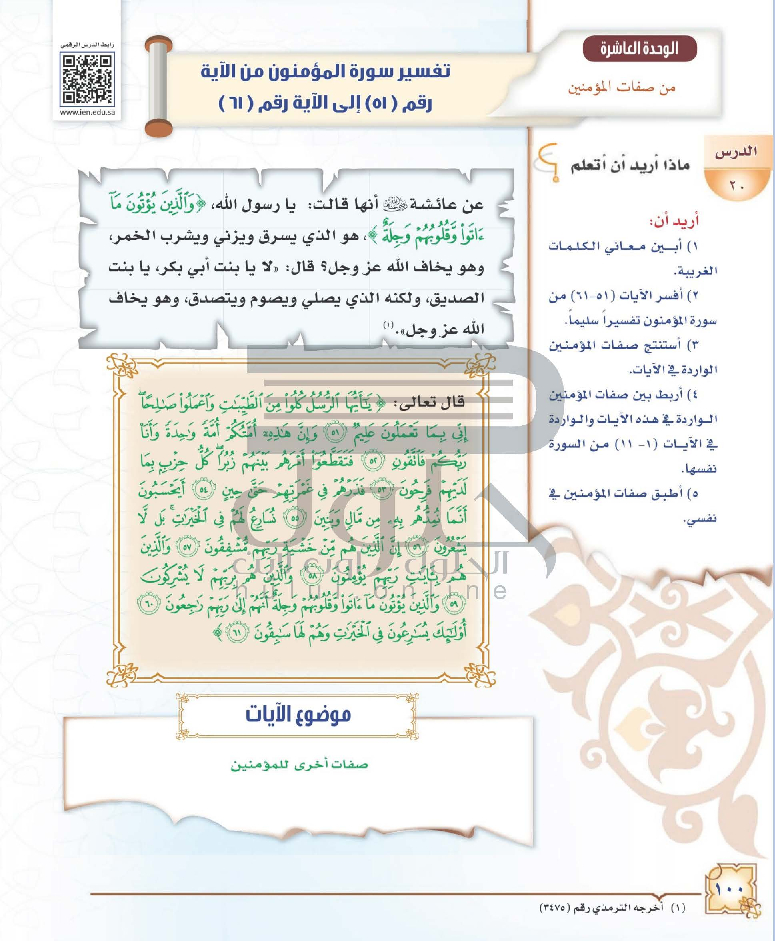 الوحدة العاشرة
من صفات المؤمنين
تفسير سورة المؤمنون من الآية
رقم (٥١) إلى الآية رقم (٦١)
رابط الدرس الرقمي
www.ien.edu.sa
الدرس
٢٠
ماذا أريد أن أتعلم
أريد أن:
١) أبـين معـاني الكلمات
الغريبة.
٢) أفسر الآيات (٥١-٦١) من
سورة المؤمنون تفسيراً سليماً.
٣) أستنتج صفات المؤمنين
الواردة في الآيات.
٤) أربط بين صفات المؤمنين
الواردة في هذه الآيات والواردة
في الآيات (١- ١١) من السورة
نفسها.
٥) أطبق صفات المؤمنين في
نفسي.
عن عائشة أنها قالت: يا رسول الله، ﴿وَٱلَّذِينَ يُؤۡتُونَ مَآ
ءَاتَواْ وَّقُلُوبُهُمۡ وَجِلَةٌ﴾، هو الذي يسرق ويزني ويشرب الخمر،
وهو يخاف الله عز وجل؟ قال: «لا يا بنت أبي بكر، يا بنت
الصديق، ولكنه الذي يصلي ويصوم ويتصدق، وهو يخاف
الله عز وجل».(١)
قال تعالى: ﴿ يَٰٓأَيُّهَا ٱلرُّسُلُ كُلُواْ مِنَ ٱلطَّيِّبَٰتِ وَٱعۡمَلُواْ صَٰلِحًاۖ
إِنِّي بِمَا تَعۡمَلُونَ عَلِيمٞ ٥١ وَإِنَّ هَٰذِهِۦٓ أُمَّتُكُمۡ أُمَّةٗ وَٰحِدَةٗ وَأَنَا۠
رَبُّكُمۡ فَٱتَّقُونِ ٥٢ فَتَقَطَّعُوٓاْ أَمۡرَهُم بَيۡنَهُمۡ زُبُرٗاۖ كُلُّ حِزۡبِۭ بِمَا
لَدَيۡهِمۡ فَرِحُونَ ٥٣ فَذَرۡهُمۡ فِي غَمۡرَتِهِمۡ حَتَّىٰ حِينٍ ٥٤ أَيَحۡسَبُونَ
أَنَّمَا نُمِدُّهُم بِهِۦ مِن مَّالٖ وَبَنِينَ ٥٥ نُسَارِعُ لَهُمۡ فِي ٱلۡخَيۡرَٰتِۚ بَل لَّا
يَشۡعُرُونَ ٥٦ إِنَّ ٱلَّذِينَ هُم مِّنۡ خَشۡيَةِ رَبِّهِم مُّشۡفِقُونَ ٥٧ وَٱلَّذِينَ
هُم بِـَٔايَٰتِ رَبِّهِمۡ يُؤۡمِنُونَ ٥٨ وَٱلَّذِينَ هُم بِرَبِّهِمۡ لَا يُشۡرِكُونَ
٥٩ وَٱلَّذِينَ يُؤۡتُونَ مَآ ءَاتَواْ وَّقُلُوبُهُمۡ وَجِلَةٌ أَنَّهُمۡ إِلَىٰ رَبِّهِمۡ رَٰجِعُونَ ٦٠
أُوْلَٰٓئِكَ يُسَٰرِعُونَ فِي ٱلۡخَيۡرَٰتِ وَهُمۡ لَهَا سَٰبِقُونَ ٦١ ﴾
حلول
الحلول أون لاين
hulul.online
موضوع الآيات
صفات أخرى للمؤمنين
١٠٠
(١) أخرجه الترمذي رقم (٣٤٧٥)